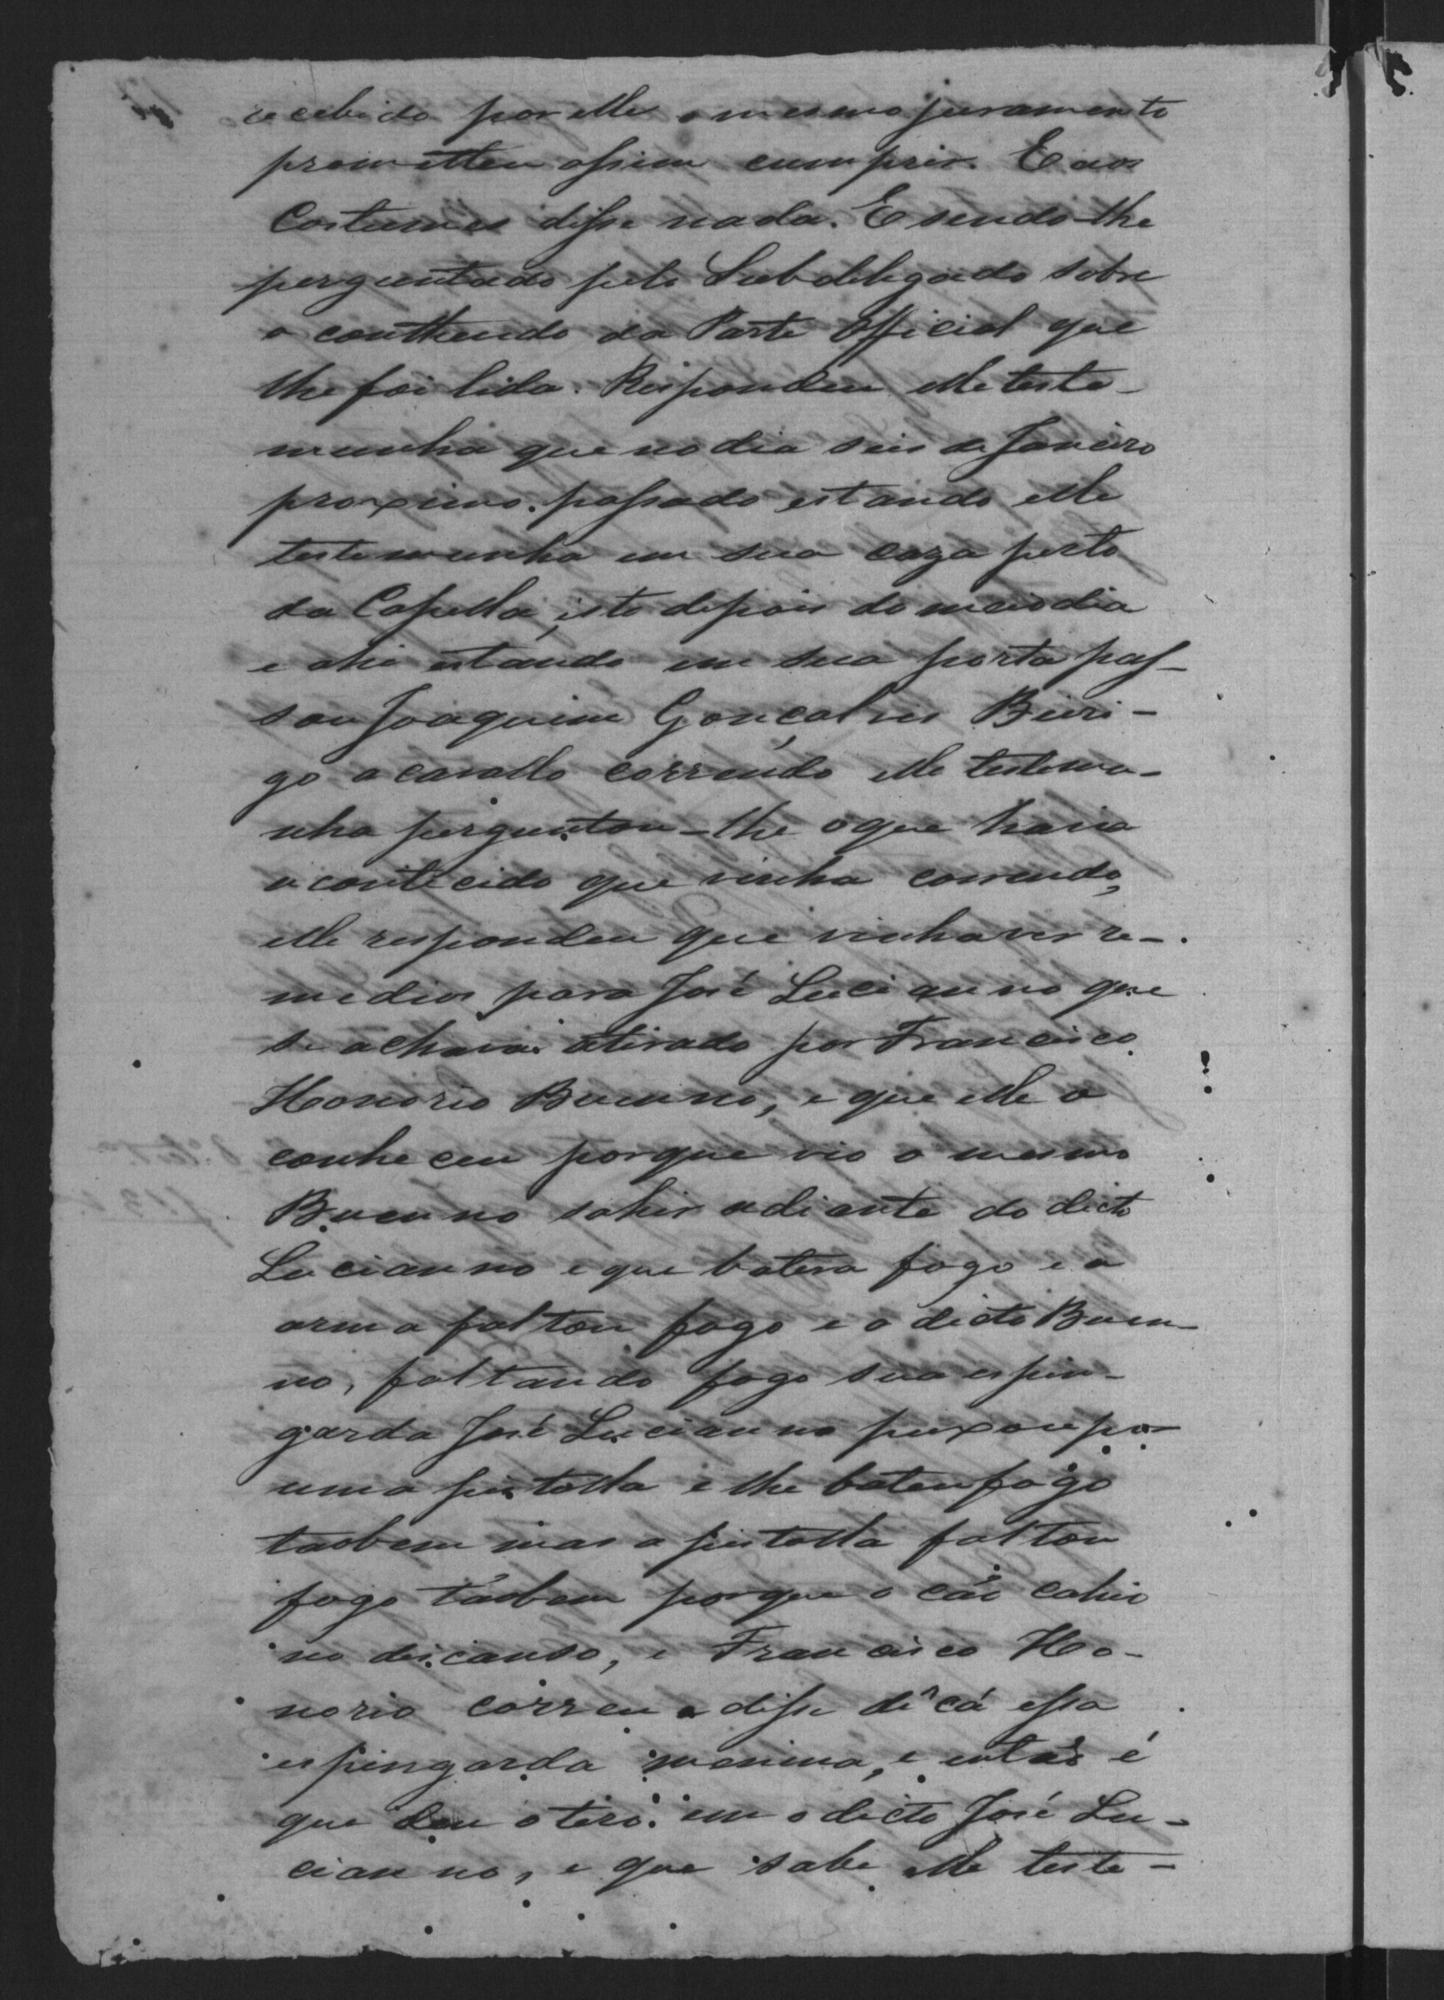 recebido por elle o mesmo juramento
prometteu assim cumprir. E aos
Costumes disse nada. E sendo-lhe
perguntado pelo Subdelegado sobre
o conthendo da Parte Official que
lhe foi lida. Respondeu elle teste-
munha que no dia seis de Janeiro
proximo passado estando elle
testemunha em sua caza perto
da Capella, isto depois do meio dia
e ahi estando em sua porta pas-
sou Joaquim Gonçalves Buri-
go a cavallo correndo elle testemu-
nha perguntou-lhe o que havia
acontecido que vinha correndo,
elle respondeu que vinha ver re-
medios para José Lucianno que
se achava atirado por Francisco
Honorio Buenno, e que elle o
conheceu porque vio o mesmo
Buenno sahir adiante do dicto
Lucianno e que batera fogo e a
arma faltou fogo e o dicto Buen-
no, faltando fogo sua espin-
garda José Lucianno puxou por
uma pistolla e lhe bateu fogo
tambem mas a pistolla faltou
fogo tambem porque o cão cahio
no descanso, e Francisco Ho-
norio correu e disse dê cá essa
espingarda menina, e então é
que deu o tiro em o dicto José Lu-
cianno, e que sabe elle teste-